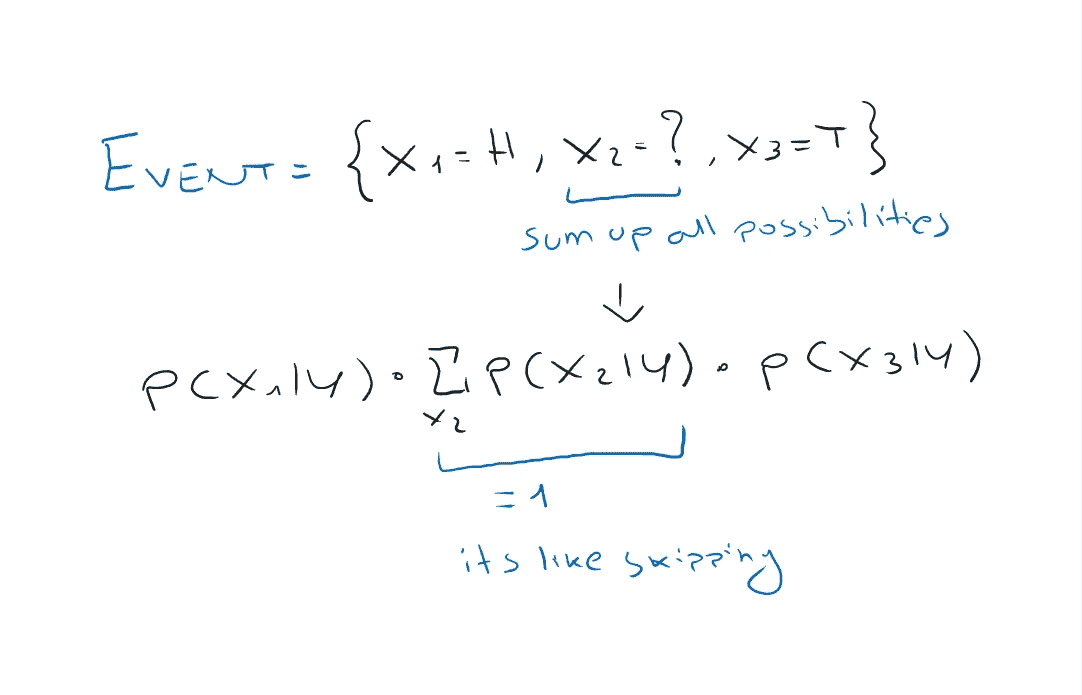 EVENT = {X1=H, X2=?, X3=T}
sum up all possibilities
↓
P(X1|Y) · ∑ P(X2|Y) · P(X3|Y)
X2
=1
its like skipping